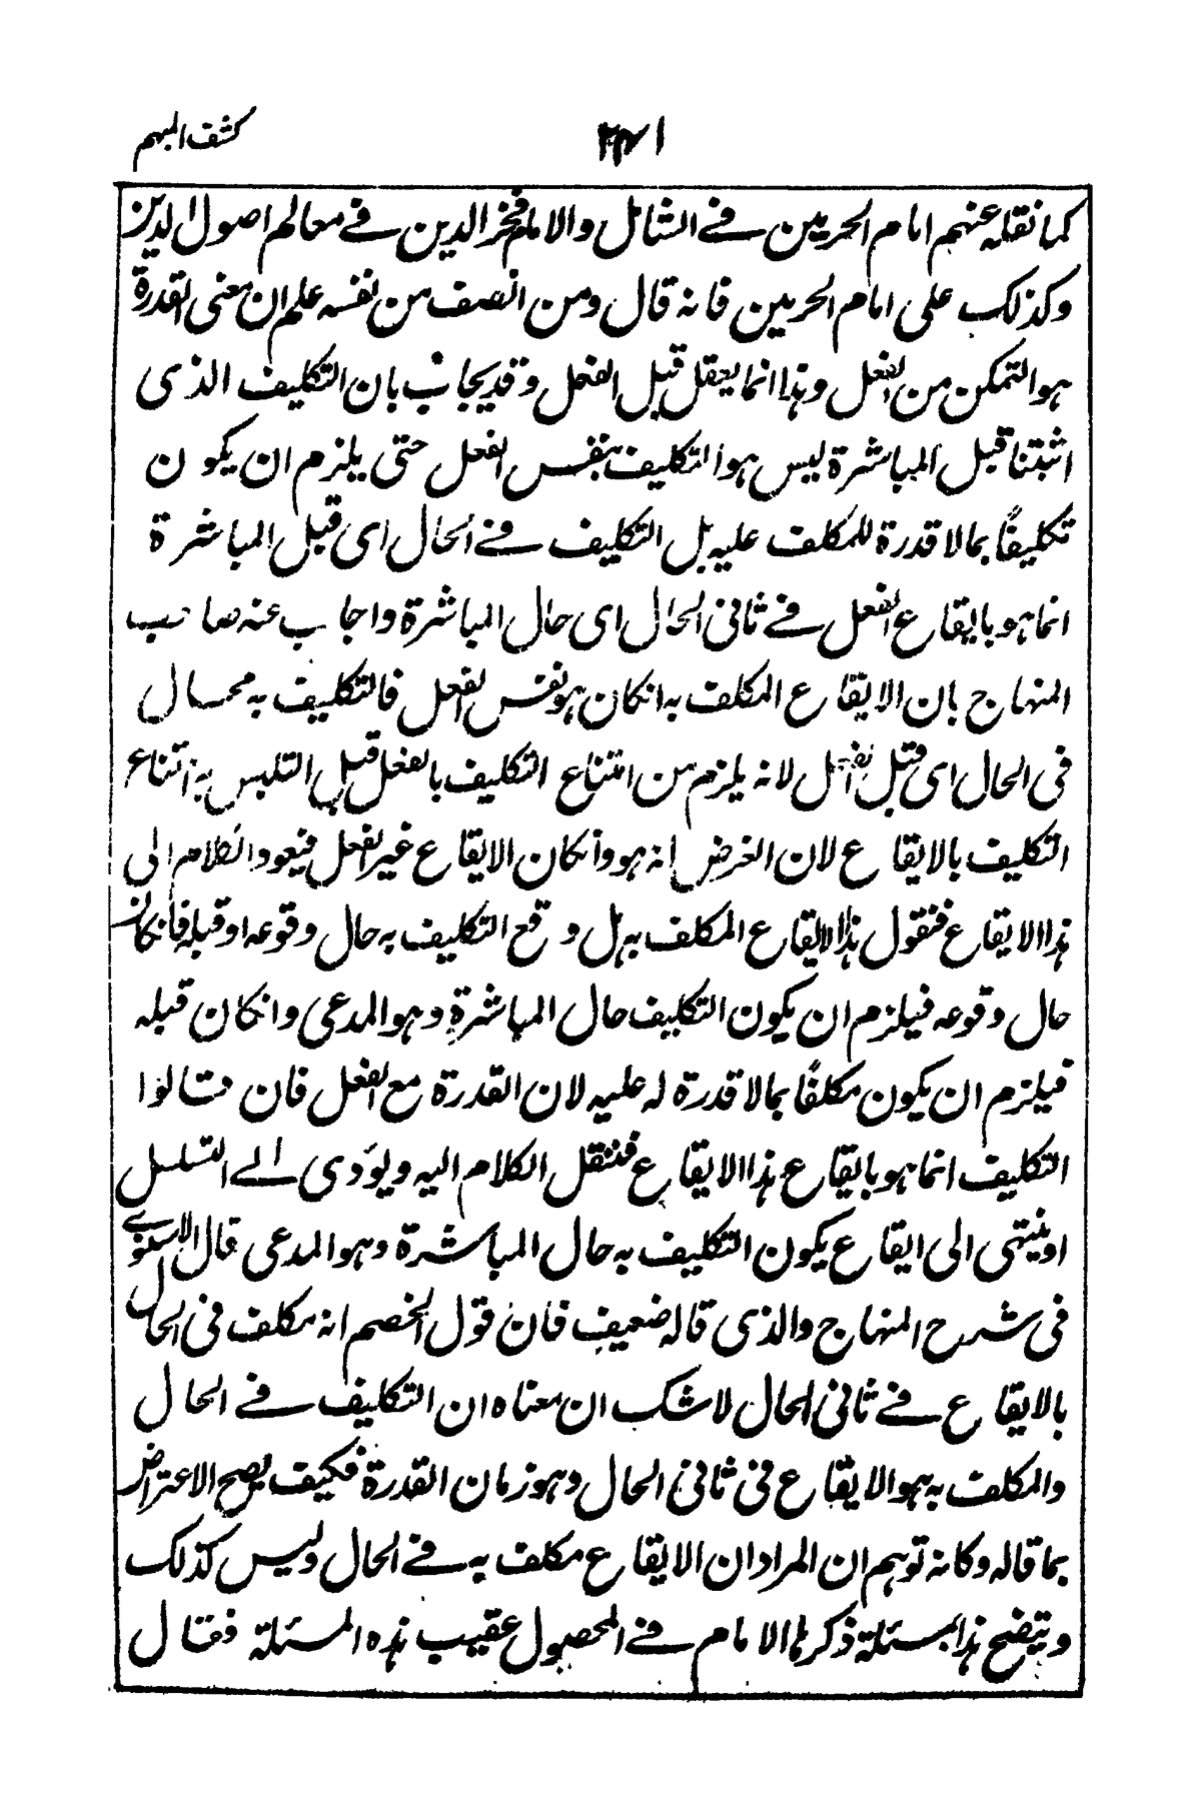 كشف المبهم
كما نقله عنهم امام الحرمين في الشامل والامام فخر الدين في معالم اصول الدين
وكذلك على امام الحرمين فانه قال ومن انصف من نفسه علم ان معنى القدرة
هو التمكن من الفعل وهذا انما يعقل قبل الفعل وقد يجاب بان التكليف الذى
اثبتنا قبل المباشرة ليس هو التكليف بنفس الفعل حتى يلزم ان يكون
تكليفًا بما لا قدرة للمكلف عليه بل التكليف في الحال اى قبل المباشرة
انما هو بايقاع الفعل في ثانى الحال اى حال المباشرة واجاب عنه صاحب
المنهاج بان الايقاع المكلف به انكان هو نفس الفعل فالتكليف به محال
فى الحال اى قبل الفعل لانه يلزم من امتناع التكليف بالفعل قبل التلبس به امتناع
التكليف بالايقاع لان الغرض انه هو وانكان الايقاع غير الفعل فيعود الكلام الى
هذا الايقاع فنقول هذا الايقاع المكلف به هل وقع التكليف به حال وقوعه او قبله فانكان
حال وقوعه فيلزم ان يكون التكليف حال المباشرة وهو المدعى وانكان قبله
فيلزم ان يكون مكلفًا بما لا قدرة له عليه لان القدرة مع الفعل فان قالوا
التكليف انما هو بايقاع هذا الايقاع فننقل الكلام اليه ويؤدى الى التسلسل
او ينتهى الى ايقاع يكون التكليف به حال المباشرة وهو المدعى قال الاسنوى
فى شرح المنهاج والذى قاله ضعيف فان قول الخصم انه مكلف فى الحال
بالايقاع في ثانى الحال لا شك ان معناه ان التكليف في الحال
والمكلف به هو الايقاع فى ثانى الحال وهو زمان القدرة فكيف يصح الاعتراض
بما قاله وكانه توهم ان المراد ان الايقاع مكلف به في الحال وليس كذلك
ويتضح هذا بمسئلة ذكرها الامام في المحصول عقيب هذه المسئلة فقال